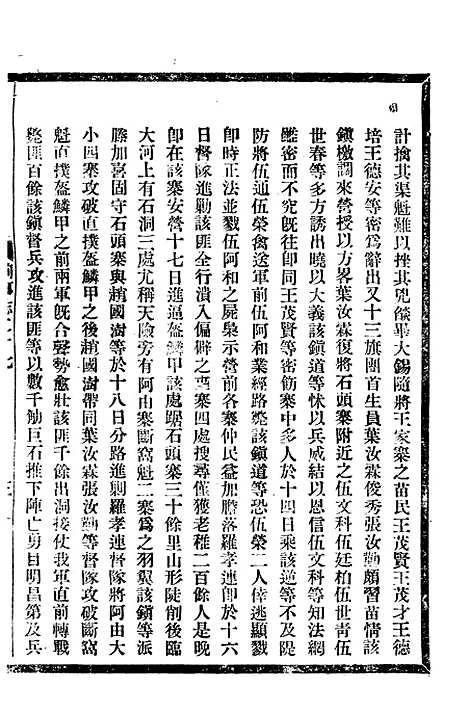 計擒其渠魁難以挫其兇燄畢大錫隨將王家寨之苗民王茂賢王茂才王德
培王德安等密爲辭出又十三旗團首生員葉汝霖俊秀張汝勤頗習苗情該
鎮檄調來營授以方畧葉汝霖復將石頭寨附近之伍文科伍廷柏伍世青伍
世春等多方誘出曉以大義該鎮道等怵以兵威結以恩信伍文科等知法網
雖密而不究旣往卽同王茂賢等密筋寨多人於十四日乘該逆等不及隄
防將伍通伍榮禽送軍前伍阿和業經路斃該鎮道等恐伍榮二人倖逃顯戮
卽時正法並戮伍阿和之屍梟示營前各寨仲民益加膽落羅孝連卽於十六
日督隊進勦該匪全行潰入偏僻之寨四處搜尋僅獲老稚二百餘人是晚
卽在該寨安營十七日進逼盔鱗甲該處踞石頭寨三十餘里山形陡削後臨
大河上有石洞三處尤稱天險旁有阿由寨斷窩魁二寨爲之羽翼該鎮等派
滕加喜固守石頭寨與趙國澍等於十八日分路進剿羅孝連督隊將阿由大
小四寨攻破直撲盔鱗甲之後趙國澍帶同葉汝霖張汝勤等督隊攻破斷窩
魁直撲盔鱗甲之前兩軍旣合聲勢愈壯該匪千餘出洞接仗我軍直前轉戰
斃匪百餘該鎮督兵攻進該匪等以數千觔巨石推下陣亡勇目明昌第及兵